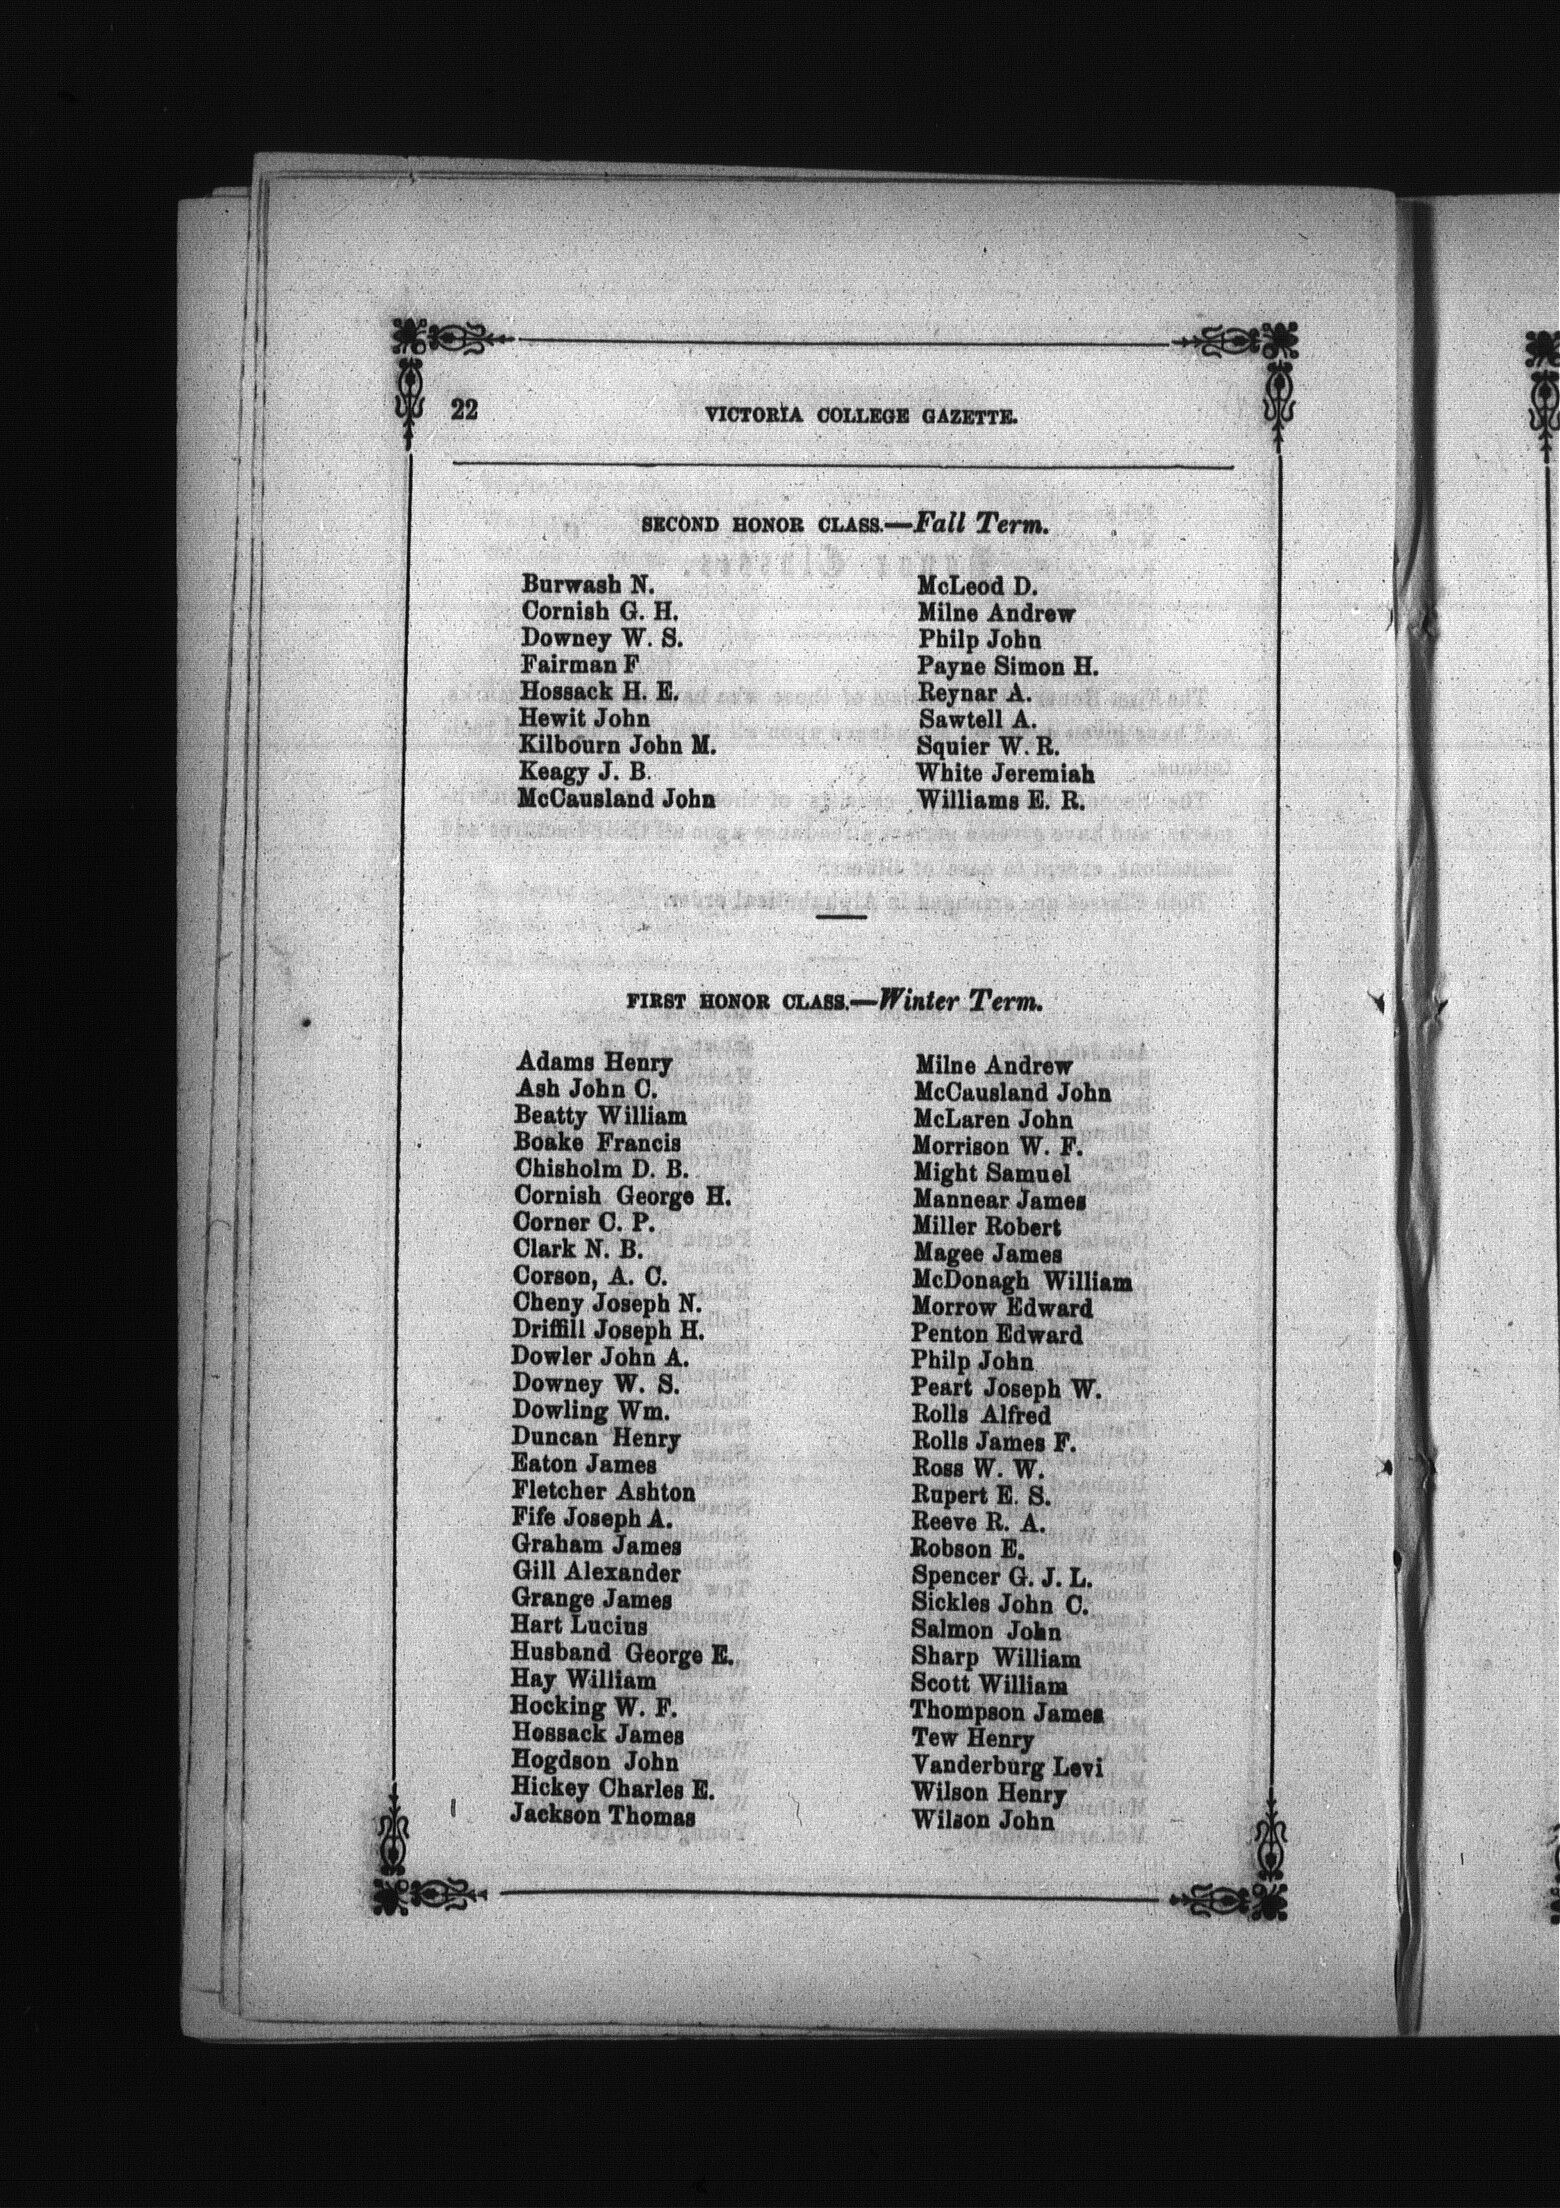 22
VICTORIA COLLEGE GAZETTE.
SECOND HONOR CLASS.—Fall Term.
Burwash N.
Cornish G. H.
Downey W. S.
Fairman F
Hossack H. E.
Hewit John
Kilbourn John M.
Keagy J. B.
McCausland John
McLeod D.
Milne Andrew
Philp John
Payne Simon H.
Reynar A.
Sawtell A.
Squier W. R.
White Jeremiah
Williams E. R.
FIRST HONOR CLASS.—Winter Term.
Adams Henry
Ash John C.
Beatty William
Boake Francis
Chisholm D. B.
Cornish George H.
Corner C. P.
Clark N. B.
Corson, A. C.
Cheny Joseph N.
Driffill Joseph H.
Dowler John A.
Downey W. S.
Dowling Wm.
Duncan Henry
Eaton James
Fletcher Ashton
Fife Joseph A.
Graham James
Gill Alexander
Grange James
Hart Lucius
Husband George E.
Hay William
Hocking W. F.
Hossack James
Hogdson John
Hickey Charles E.
Jackson Thomas
Milne Andrew
McCausland John
McLaren John
Morrison W. F.
Might Samuel
Mannear James
Miller Robert
Magee James
McDonagh William
Morrow Edward
Penton Edward
Philp John
Peart Joseph W.
Rolls Alfred
Rolls James F.
Ross W. W.
Rupert E. S.
Reeve R. A.
Robson E.
Spencer G. J. L.
Sickles John C.
Salmon John
Sharp William
Scott William
Thompson James
Tew Henry
Vanderburg Levi
Wilson Henry
Wilson John